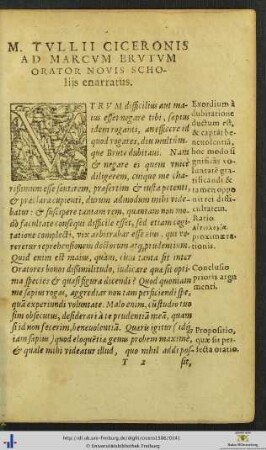 M. TVLLII CICERONIS
AD MARCVM BRVTVM
ORATOR NOVIS SCHO-
liis enarratus.
VTRVM difficilius aut ma-
ius esset negare tibi, sæpius
idem roganti, an efficere id
quod rogares, diu multúmque
Brute dubitaui. Nam
& negare ei quem vnicè
diligerem, cuique me cha-
rissimum esse sentirem, præsertim & iusta petenti,
& præclara cupienti, durum admodum mihi vide-
batur: & suscipere tantam rem, quantam non mo-
dò facultate consequi difficile esset, sed etiam cogi-
tatione complecti, vix arbitrabar esse eius, qui ve-
reretur reprehensionem doctorum atq; prudentium.
Quid enim est maius, quàm, cùm tanta sit inter
Oratores bonos dissimilitudo, iudicare quæ sit opti-
ma species & quasi figura dicendi? Quod quoniam
me sæpius rogas, aggrediar non tam perficiendi spe,
quàm experiundi voluntate. Malo enim, cùm studio tuo
sim obsecutus, desiderari à te prudentiam meam, quàm
si id non fecerim, beneuolentiam. Quæris igitur (idq;
iam sæpius) quod eloquentiæ genus probem maximè,
& quale mihi videatur illud, quo nihil addi pos-
T 2 sit,
Exordium à
dubitatione
ductum est,
& captat be-
neuolentiā,
hoc modo si
gnificās vo-
luntatē gra-
tificandi &
tamen oppo
nit rei diffi-
cultatem.
Ratio
proximæ ra-
tionis.
Conclusio
prioris argu
menti.
Propositio,
quæ sit per-
fecta oratio.
http://dl.ub.uni-freiburg.de/diglit/cicero1588/0341
© Universitätsbibliothek Freiburg
Baden-Württemberg